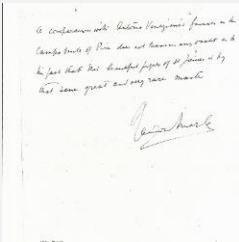 A comparison with Antonio Veneziano's frescoes in the
Campo Santo of Pisa does not leave any doubt as to
the fact that this beautiful figure of St James is by
that same great and very rare master